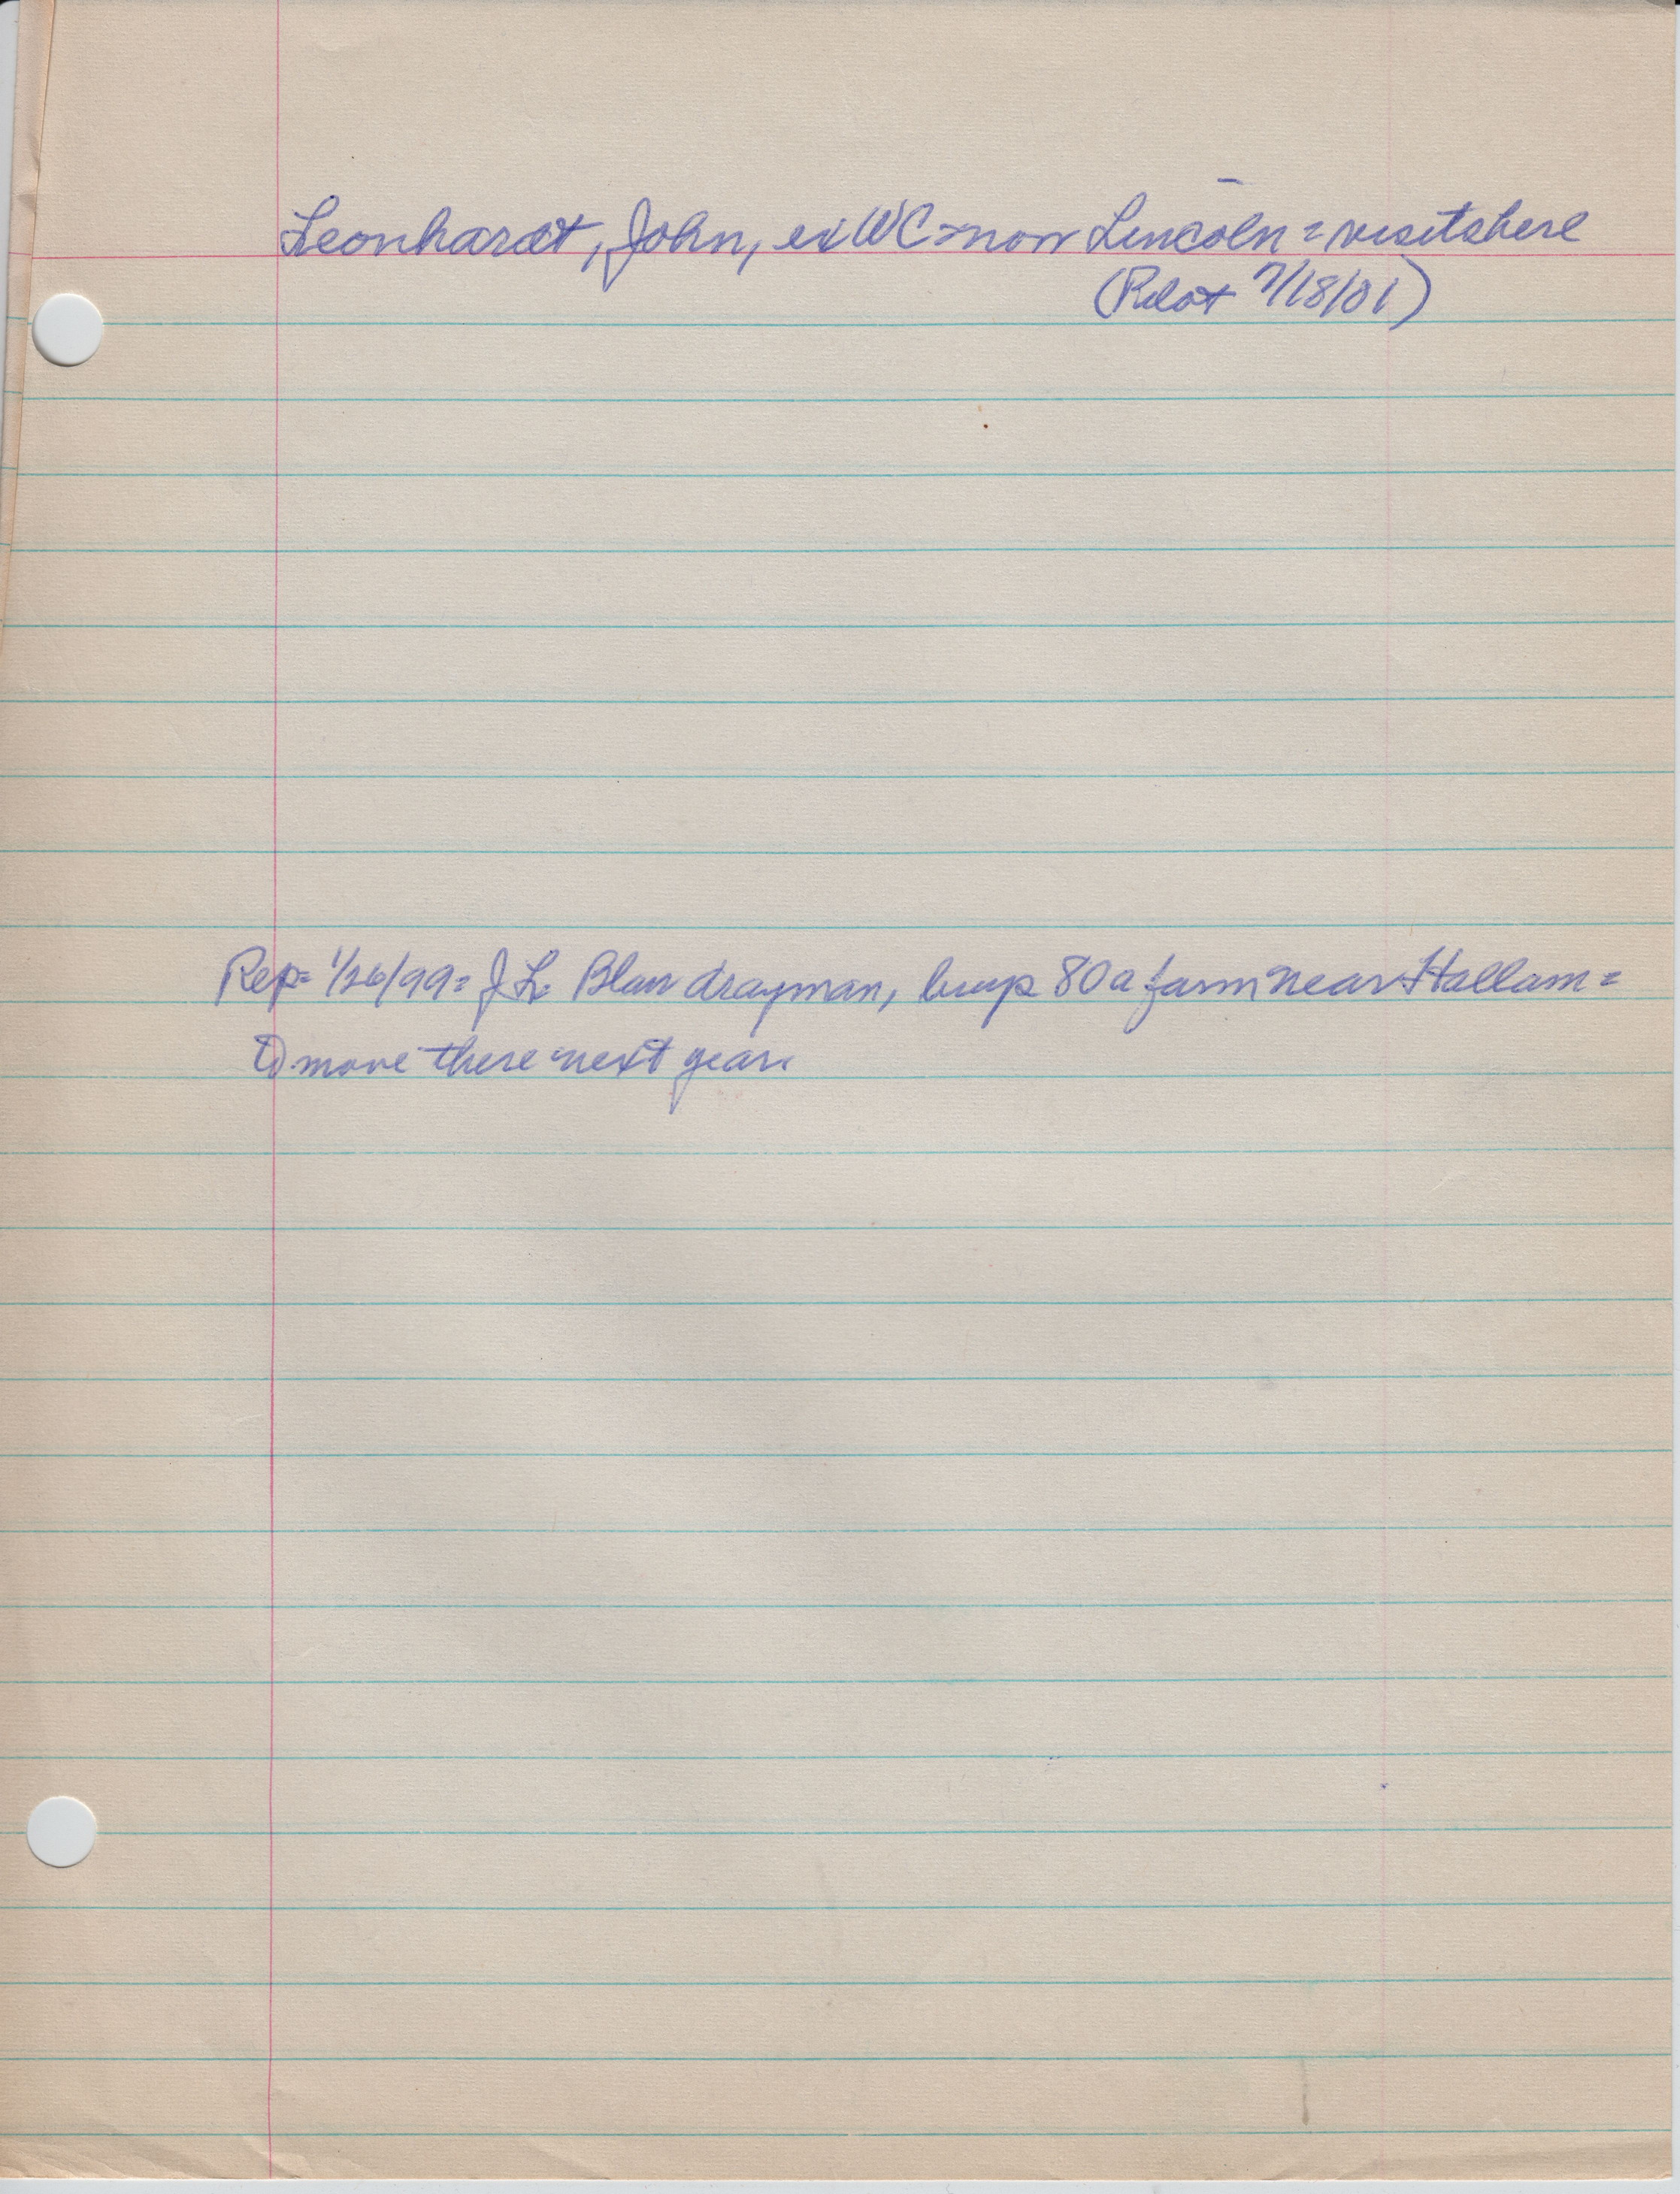 Leonhardt, John, ex WC = now Lincoln = visits here
(Pilot 7/18/01)
Rep = 1/26/99 = J. L. Blau drayman, buys 80 a farm near Hallam =
to move there next year.